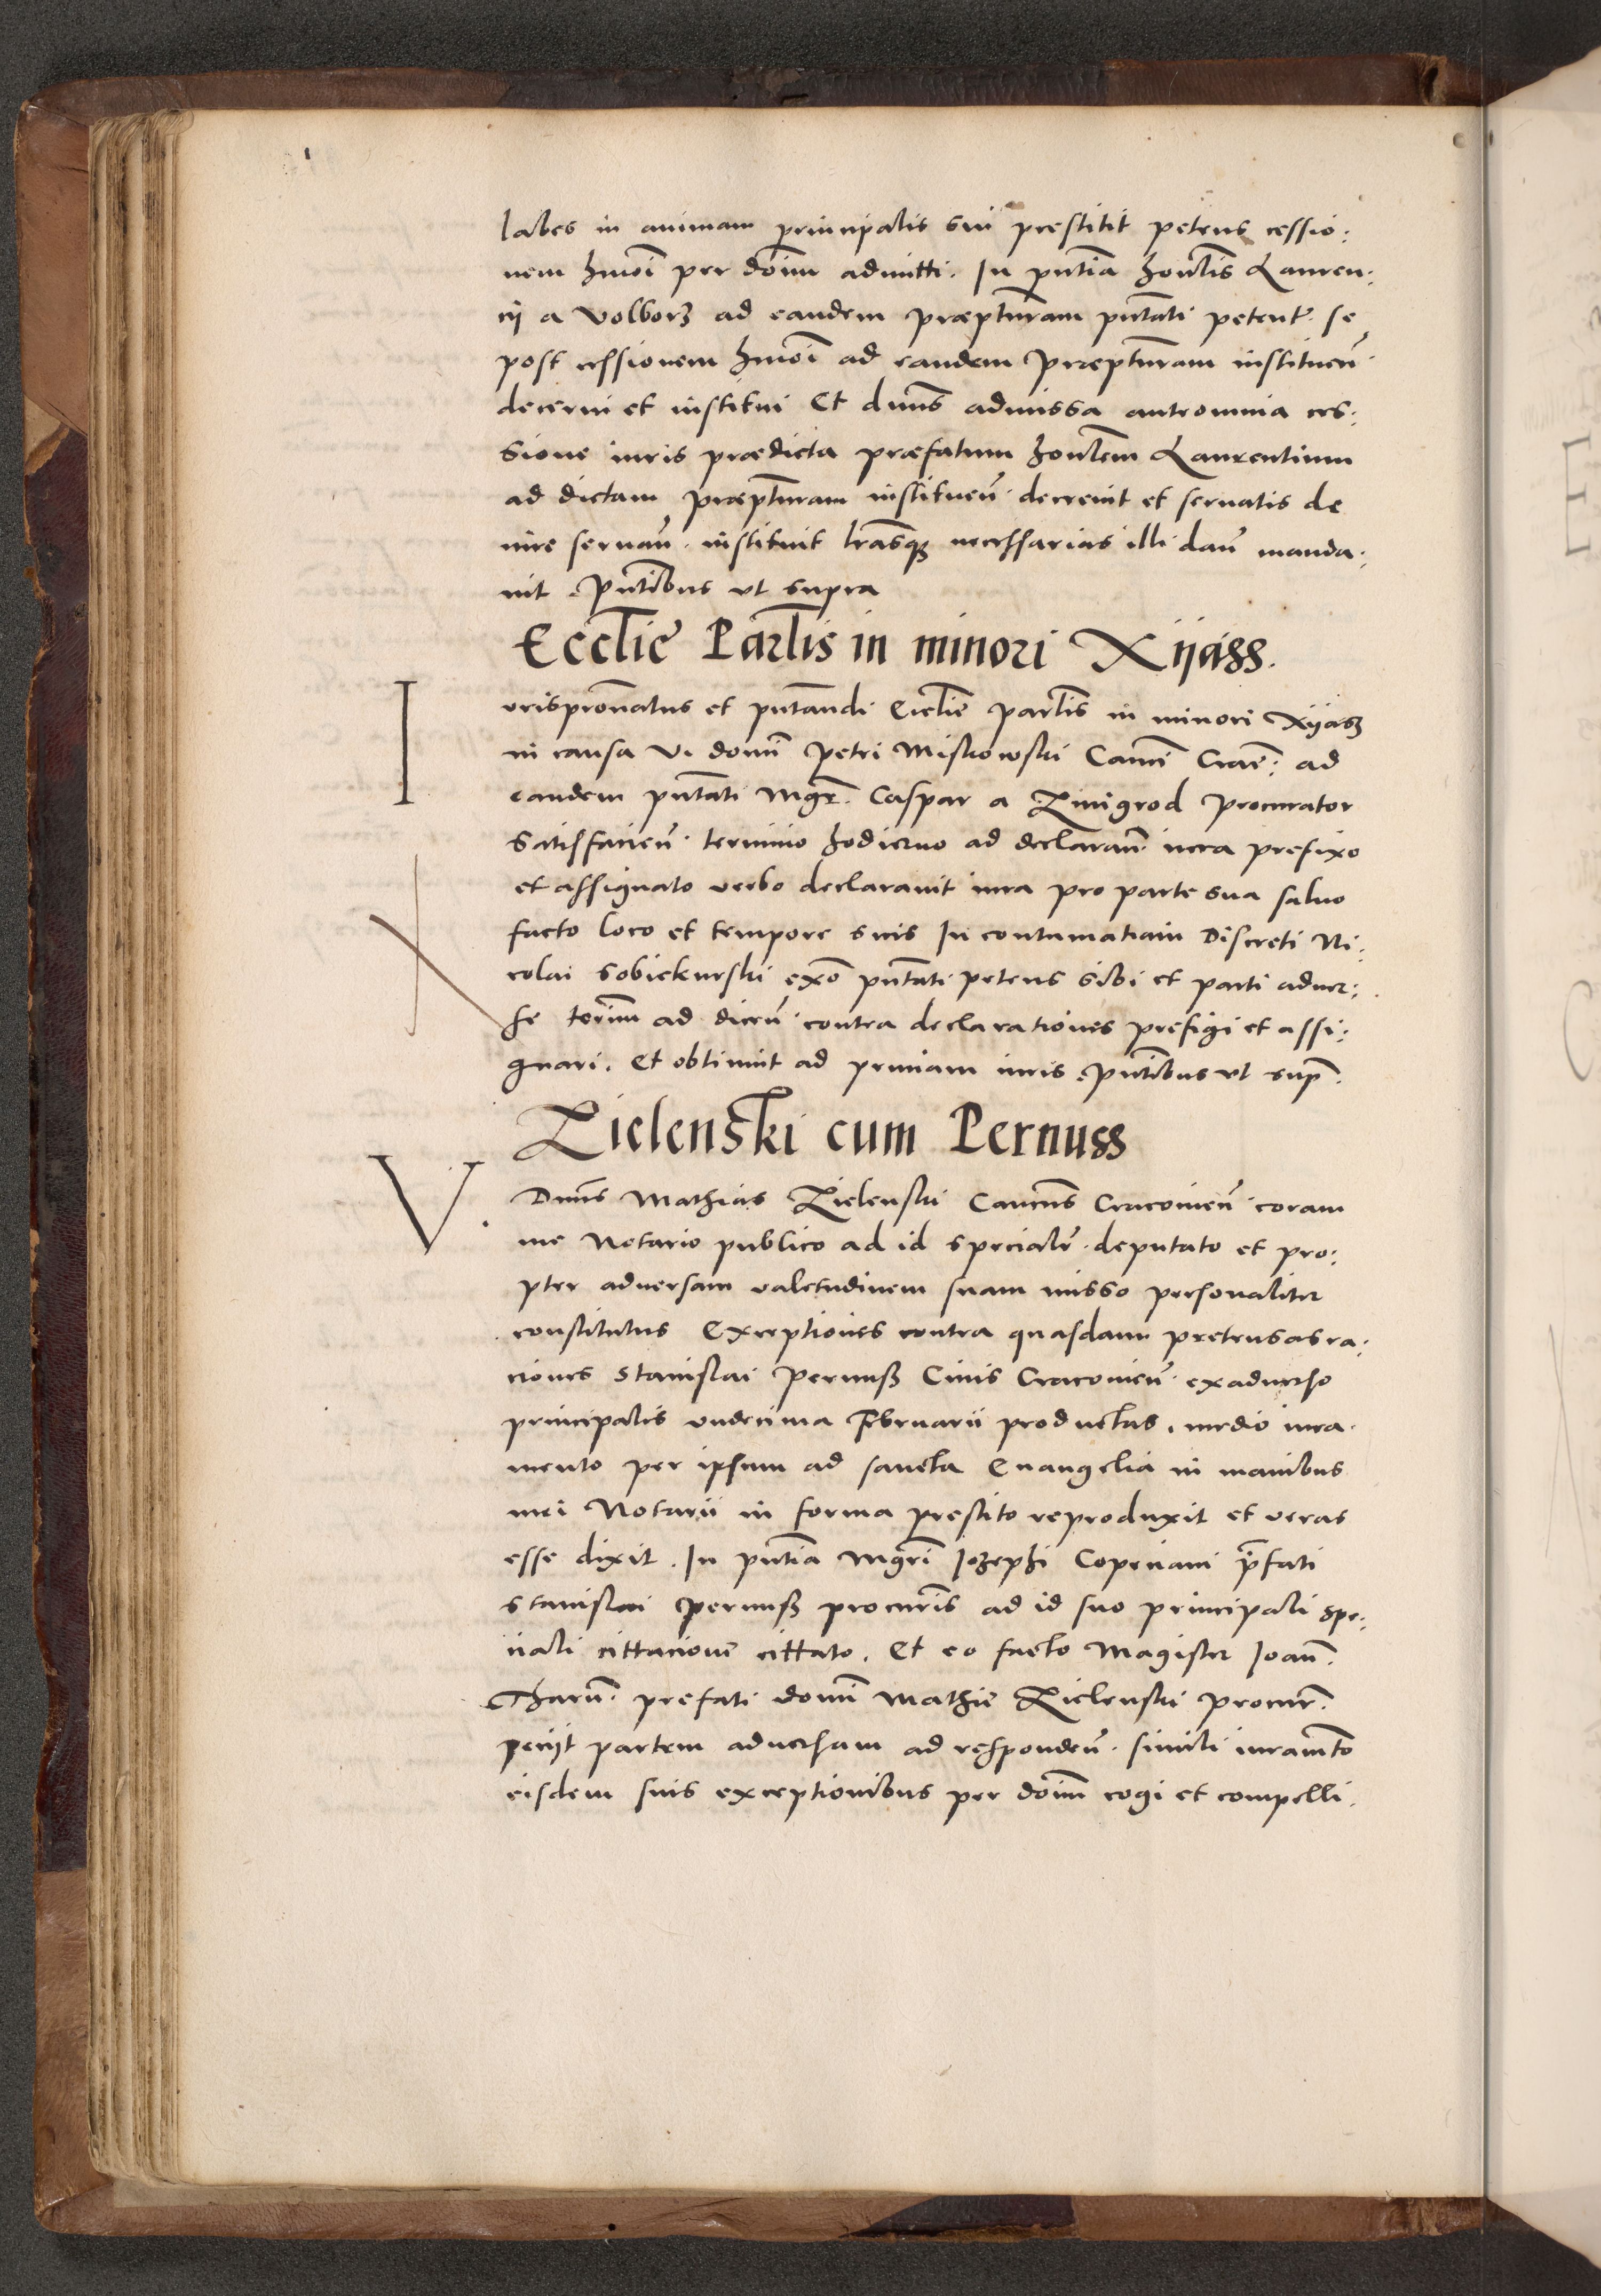 labes in animam principalis sui prestitit petens cessio:
nem hmoi per doim admitti. In pntia honlis Lauren:
cij a Volborz ad eandem præpturam pntati petent. se
post cessionem hmoi ad eandem præpturam instituen
decerni et institui Et dnus admissa autromnia ces:
sione iuris prædicta præfatum honlem Laurentium
ad dictam præpturam instituen. decreuit et seruatis de
iure seruan. instituit lrasq necessarias illi dan manda:
uit Pntibus vt supra
Ecclie Parlis in minori Xijass.
Iurispronatus et pntandi Ecclie parlis in minori Xijasz
in causa V. domi Petri Miskowski Canci Crac: ad
eandem pntati Mgr. Caspar a Zmigrod procurator
satisfacien. termino hodierno ad declaran. iura prefixo
et assignato verbo declarauit iura pro parte sua saluo
facto loco et tempore suis In contumatiam Discreti Ni:
colai Sobiekurski exo pntati petens sibi et parti aduer:
se terim ad dicen. contra declarationes prefigi et assi:
gnari. Et obtinuit ad primam iuris Pntibus vt sup.
Zielenski cum Pernuss
V. Dnus Mathias Zielenski Cancus Cracouien. coram
me Notario publico ad id specialr. deputato et pro:
pter aduersam valetudinem suam misso personaliter
constitutus Exceptiones contra quasdam pretensas ra:
ciones Stanislai Pernusz Ciuis Cracouien. exaduerso
principalis vndecima Februarii productas. medio iura.
mento per ipsum ad sancta Euangelia in manibus
mei Notarii in forma prestito reproduxit et veras
esse dixit. In pntia Mgri Iozephi Copeciani pfati
Stanislai Pernusz procuris ad id suo principali spe:
ciali cittacione cittato. Et eo facto Magister Ioan.
Tharn. prefati domi Mathie Zielenski procur.
peciit partem aduersam ad responden. simili iuramto
eisdem suis exceptionibus per doim cogi et compelli.